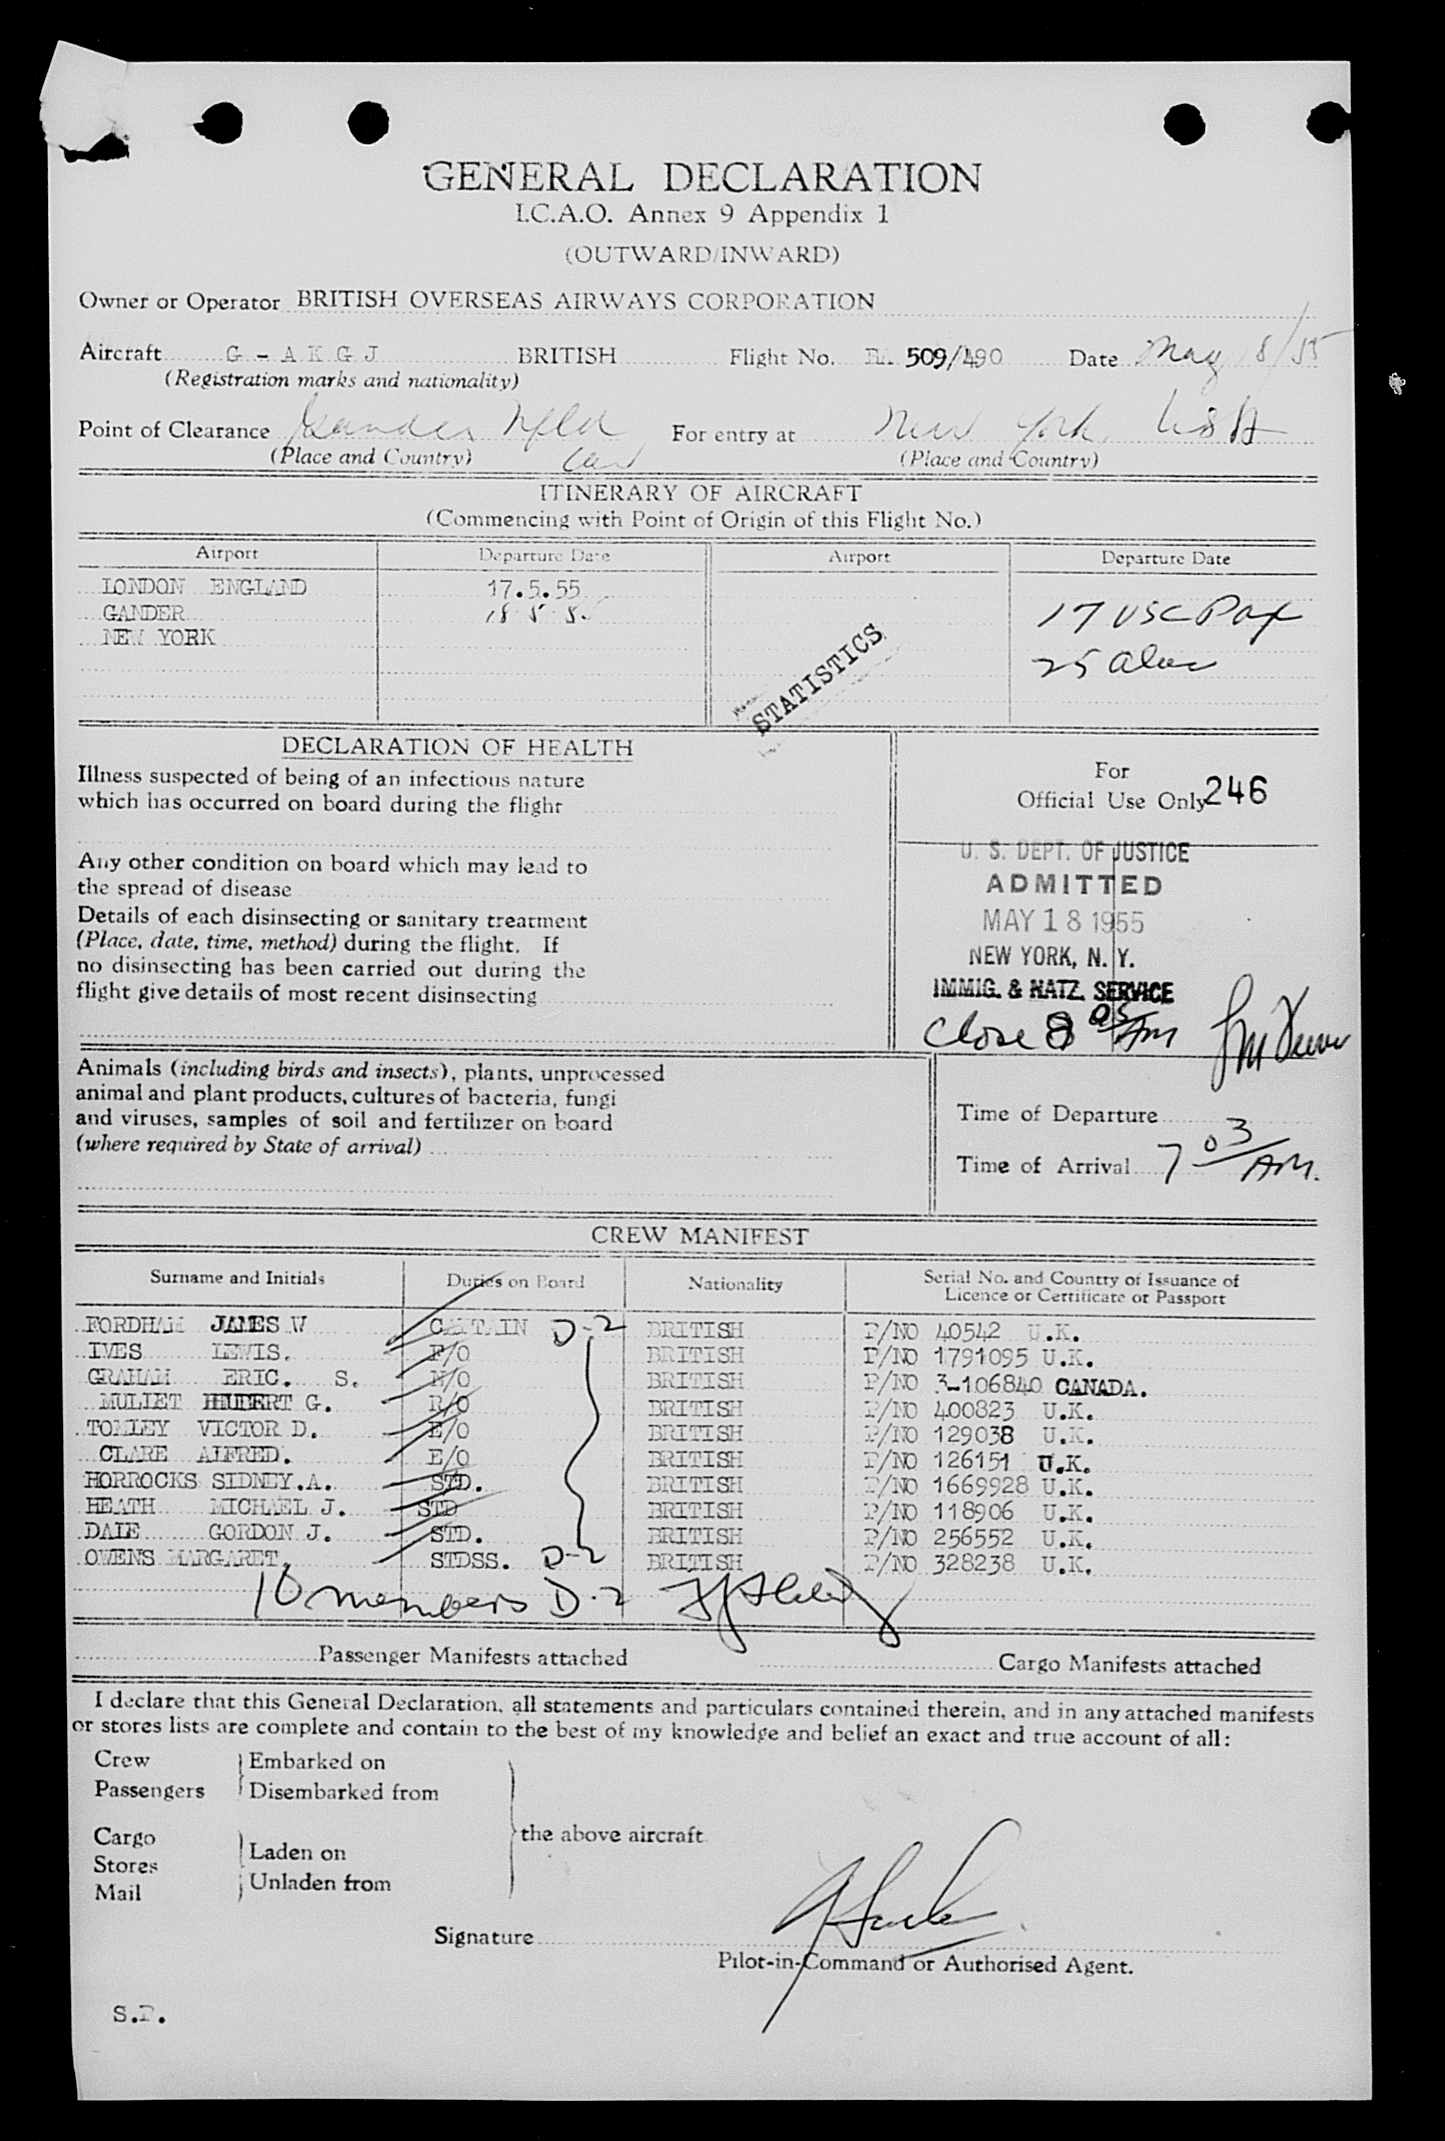 GENERAL DECLARATION
I.C.A.O. Annex 9 Appendix 1
(OUTWARD/INWARD)
Owner or Operator BRITISH OVERSEAS AIRWAYS CORPORATION
Aircraft G - A K G J BRITISH Flight No. BA. 509/490 Date May 18/55
(Registration marks and nationality)
Point of Clearance Gander Nfld For entry at New York, USA
(Place and Country) Can (Place and Country)
ITINERARY OF AIRCRAFT
(Commencing with Point of Origin of this Flight No.)
Airport Departure Date Airport Departure Date
LONDON ENGLAND 17.5.55
GANDER 18 5 5. 17 USC Pax
NEW YORK
25 alien
STATISTICS
DECLARATION OF HEALTH
Illness suspected of being of an infectious nature
which has occurred on board during the flight
For
Official Use Only 246
Any other condition on board which may lead to
the spread of disease
Details of each disinsecting or sanitary treatment
(Place, date, time, method) during the flight. If
no disinsecting has been carried out during the
flight give details of most recent disinsecting
U. S. DEPT. OF JUSTICE
ADMITTED
MAY 18 1955
NEW YORK, N. Y.
IMMIG. & NATZ. SERVICE
Close 8 05 AM
Animals (including birds and insects), plants, unprocessed
animal and plant products, cultures of bacteria, fungi
and viruses, samples of soil and fertilizer on board
(where required by State of arrival)
Time of Departure
Time of Arrival 7 03 AM.
CREW MANIFEST
Surname and Initials Duties on Board Nationality Serial No. and Country of Issuance of
Licence or Certificate or Passport
FORDHAM JAMES W CAPTAIN D-2 BRITISH P/NO 40542 U.K.
IVES LEWIS. F/O BRITISH P/NO 1791095 U.K.
GRAHAM ERIC. S. N/O BRITISH P/NO 3-106840 CANADA.
MULIET HUBERT G. R/O BRITISH P/NO 400823 U.K.
TOMLEY VICTOR D. E/O BRITISH P/NO 129038 U.K.
CLARE ALFRED. E/O BRITISH P/NO 126151 U.K.
HORROCKS SIDNEY.A. STD. BRITISH P/NO 1669928 U.K.
HEATH MICHAEL J. STD BRITISH P/NO 118906 U.K.
DALE GORDON J. STD. BRITISH P/NO 256552 U.K.
OWENS MARGARET. STDSS. D-2 BRITISH P/NO 328238 U.K.
10 members D-2
Passenger Manifests attached Cargo Manifests attached
I declare that this General Declaration, all statements and particulars contained therein, and in any attached manifests
or stores lists are complete and contain to the best of my knowledge and belief an exact and true account of all:
Crew Embarked on
Passengers Disembarked from
the above aircraft
Cargo
Stores Laden on
Mail Unladen from
Signature
Pilot-in-Command or Authorised Agent.
S.P.